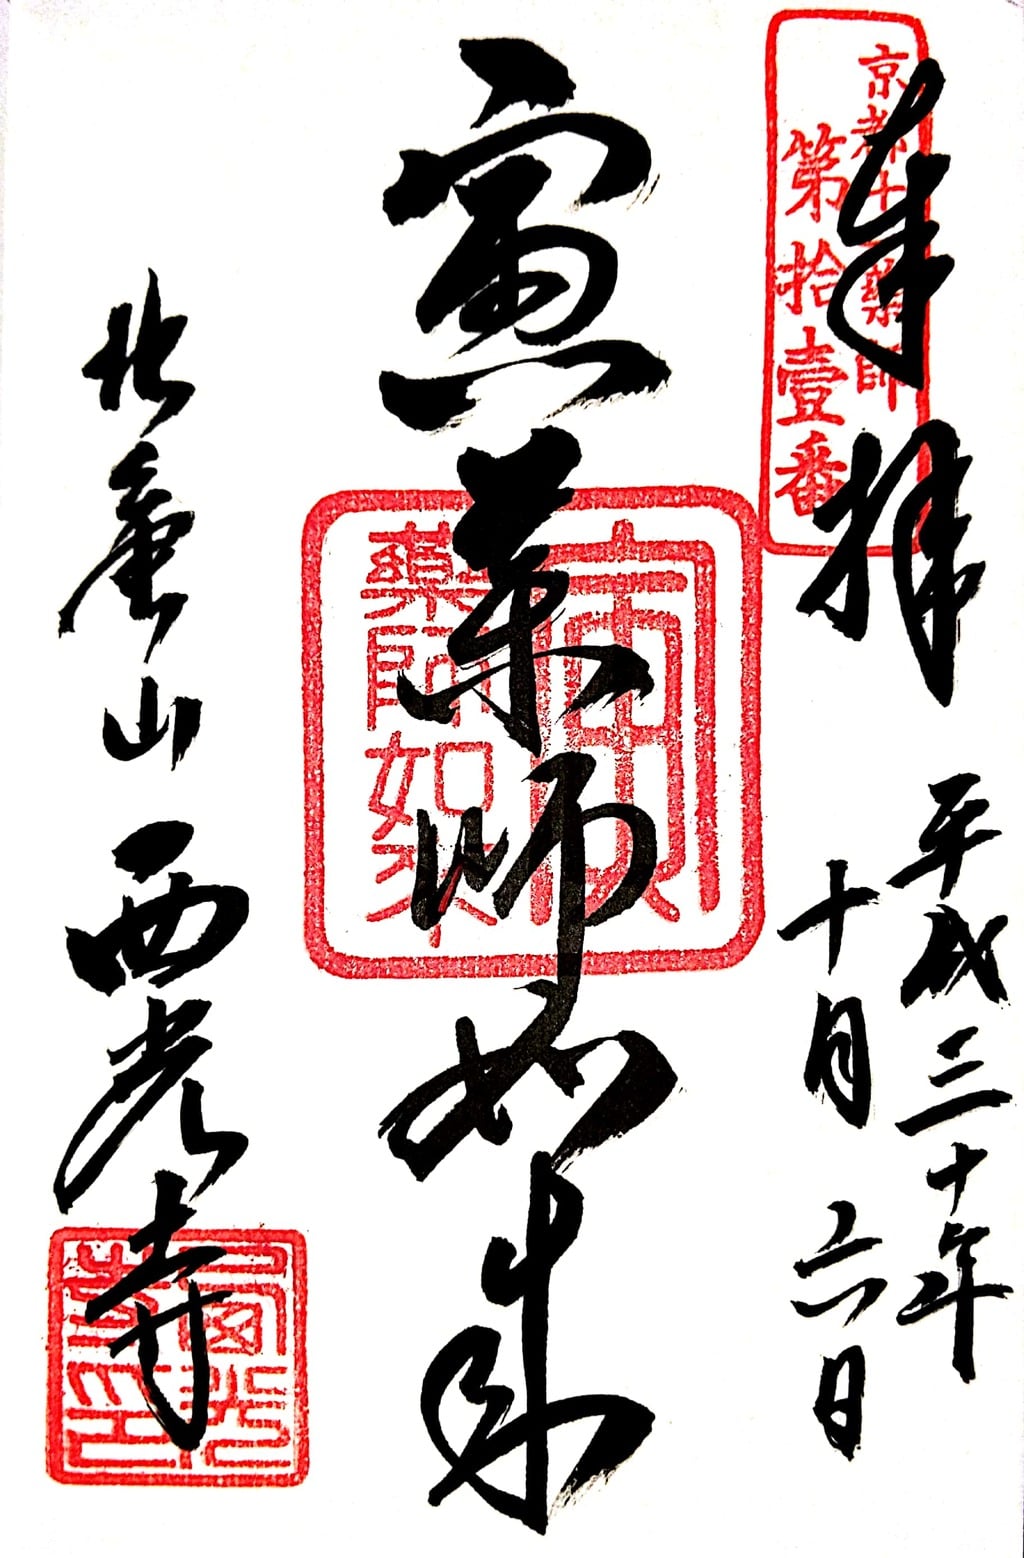 京都十二藥師
第拾壹番
奉拝
平成三十年
十月六日
寅薬師如来
寅
藥師如来
山西光寺
西光
寺印